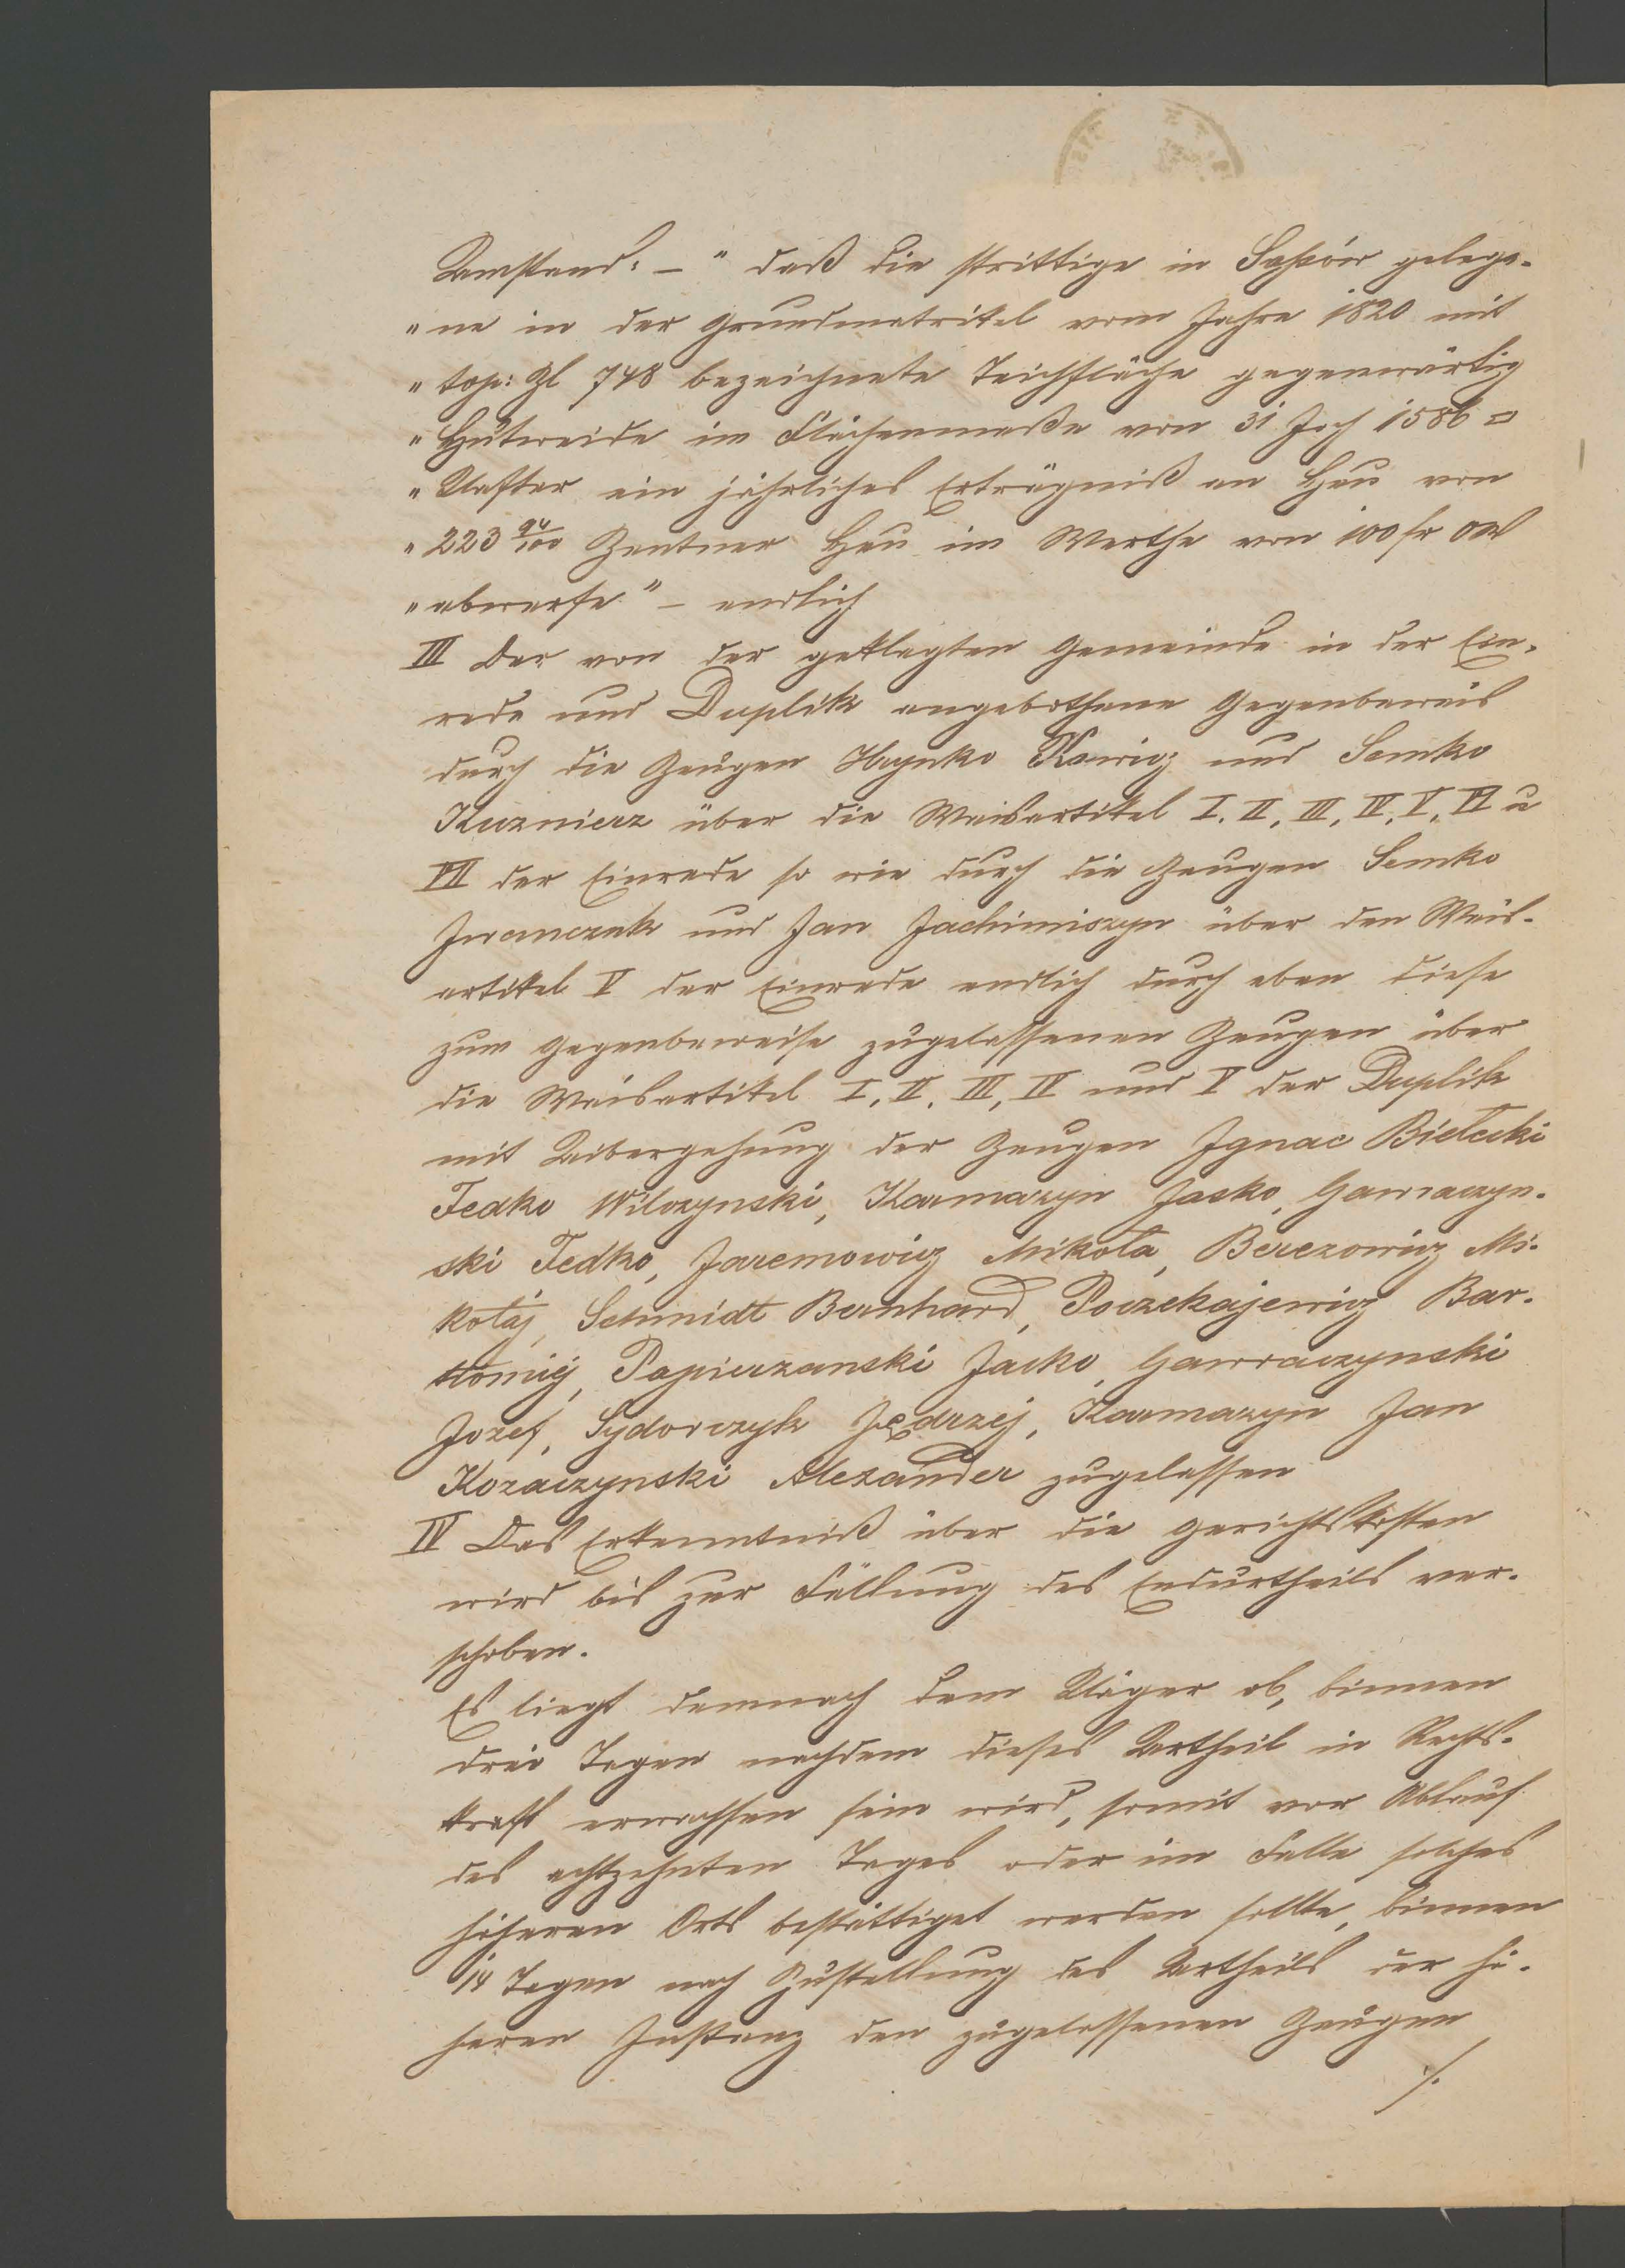 Umstand: – " daß die strittige in Saposów gelege-
" ne in der Grundmatrikel vom Jahre 1820 mit
" top: Zl 748 bezeichnete Teichfläche gegenwärtig
" Hutweide im Flächenmaße von 31 Joch 1586 □
" Klafter ein jährliches Erträgniß an Heu von
" 223 94/100 Zentner Heu im Werthe von 100 fr OW
" abwerfe " – endlich
III Der von der geklagten Gemeinde in der Ein-
rede und Duplik angebothene Gegenbeweis
durch die Zeugen Hrynko Kowicz und Semko
Kuznierz über die Weisartikel I. II, III, IV, V, VI u
VII der Einrede so wie durch die Zeugen Semko
Iwanczuk und Jan Jachimiszyn über den Weis-
artikel V der Einrede endlich durch eben diese
zum Gegenbeweise zugelassenen Zeugen über
die Weisartikel I, II, III, IV und V der Duplik
mit Uibergehung der Zeugen Ignac Bielecki
Fedko Wilczynski, Karmazyn Jasko, Gawraczyn-
ski Fedko, Jaremowicz Mikoła, Berezowicz Mi-
kołaj, Schmidt Bernhard, Poczekajewicz Bar-
tłomiej, Papierzanski Jacko, Gawraczynski
Jozef, Sydorczyk Jędrzej, Karmazyn Jan
Kozaczynski Alexander zugelassen
IV Das Erkenntniß über die Gerichtskosten
wird bis zur Fällung des Endurtheils ver-
schoben.
Es liegt demnach dem Kläger ob, binnen
drei Tagen nachdem dieses Urtheil in Rechts-
kraft erwachsen sein wird, somit vor Ablauf
des achtzehnten Tages oder im Falle solches
höheren Orts bestättiget werden sollte, binnen
14 Tagen nach Zustellung des Urtheils der hö-
heren Instanz den zugelassenen Zeugen
./.